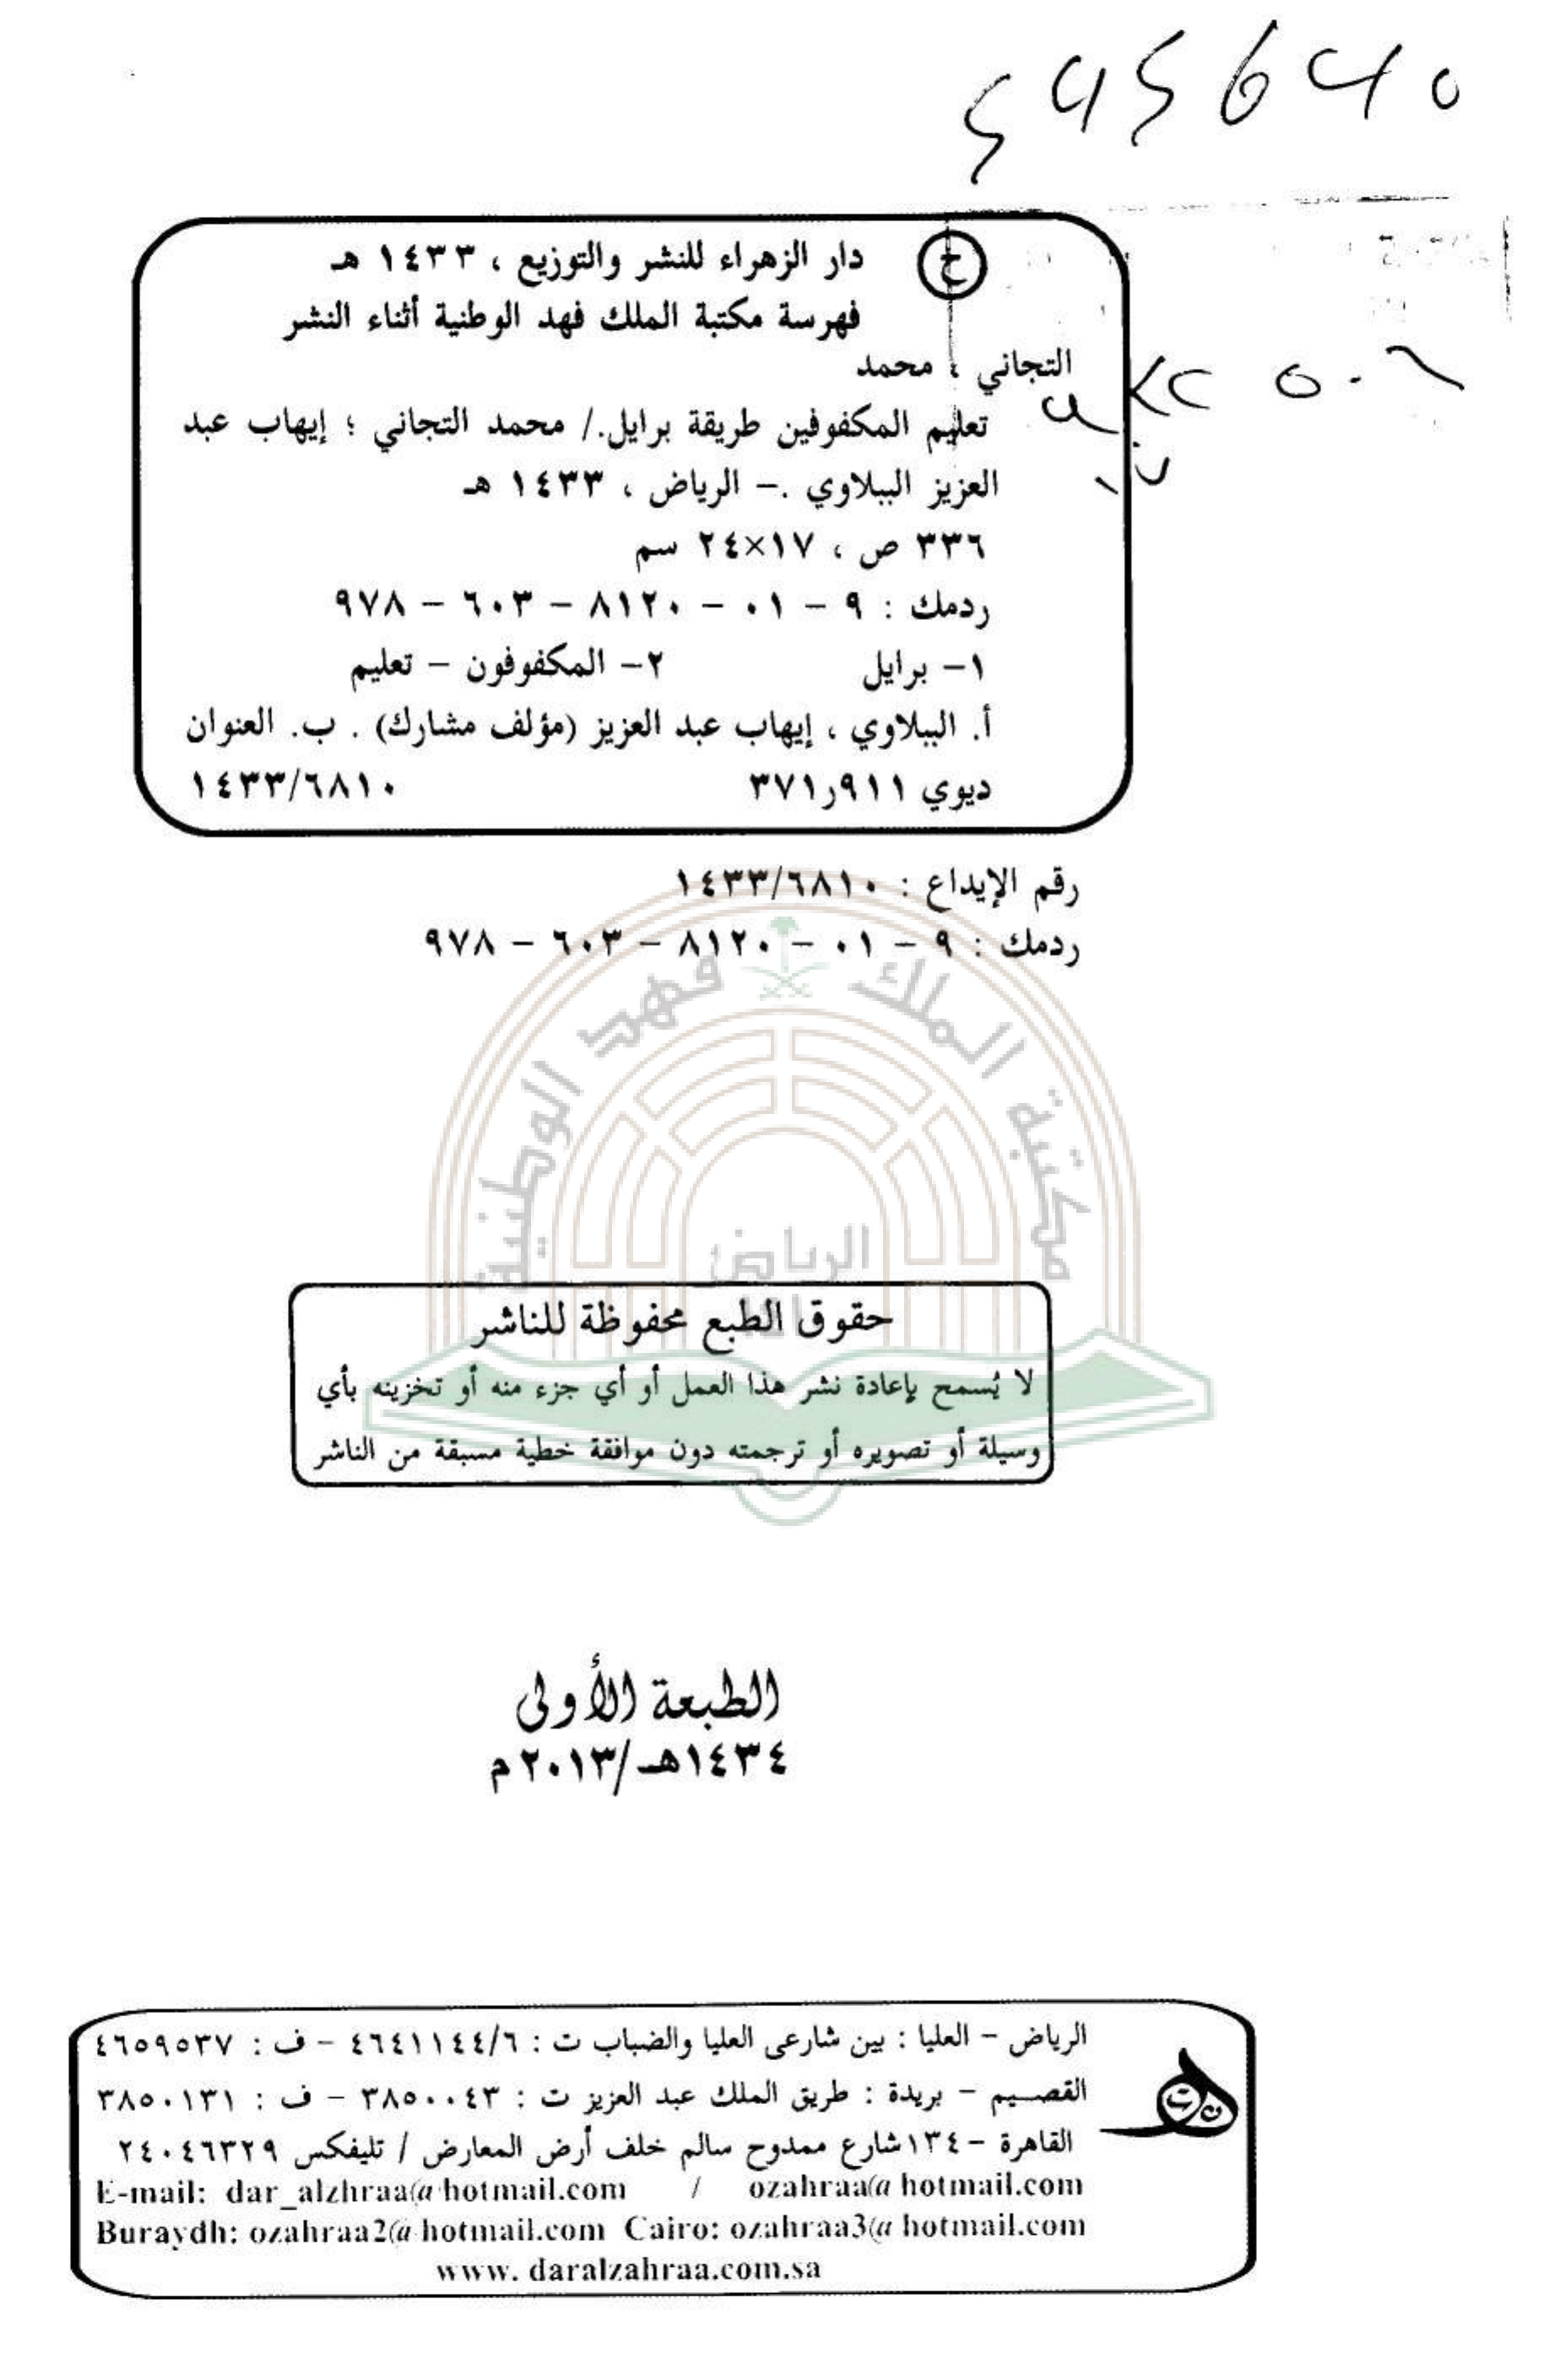 ح دار الزهراء للنشر والتوزيع ، ١٤٣٣ هـ
فهرسة مكتبة الملك فهد الوطنية أثناء النشر
التجاني ، محمد
تعليم المكفوفين طريقة برايل./ محمد التجاني ؛ إيهاب عبد
العزيز الببلاوي .– الرياض ، ١٤٣٣ هـ
٣٣٦ ص ، ١٧×٢٤ سم
ردمك : ٩ – ٠١ – ٨١٢٠ – ٦٠٣ – ٩٧٨
١– برايل ٢– المكفوفون – تعليم
أ. الببلاوي ، إيهاب عبد العزيز (مؤلف مشارك) . ب. العنوان
ديوي ٣٧١٫٩١١ ١٤٣٣/٦٨١٠
رقم الإيداع : ١٤٣٣/٦٨١٠
ردمك : ٩ – ٠١ – ٨١٢٠ – ٦٠٣ – ٩٧٨
مكتبة الملك فهد الوطنية
الرياض
حقوق الطبع محفوظة للناشر
لا يُسمح بإعادة نشر هذا العمل أو أي جزء منه أو تخزينه بأي
وسيلة أو تصويره أو ترجمته دون موافقة خطية مسبقة من الناشر
الطبعة الأولى
١٤٣٤هـ/٢٠١٣م
الرياض – العليا : بين شارعى العليا والضباب ت : ٤٦٤١١٤٤/٦ – ف : ٤٦٥٩٥٣٧
القصيم – بريدة : طريق الملك عبد العزيز ت : ٣٨٥٠٠٤٣ – ف : ٣٨٥٠١٣١
القاهرة – ١٣٤شارع ممدوح سالم خلف أرض المعارض / تليفكس ٢٤٠٤٦٣٢٩
E-mail: dar_alzhraa@hotmail.com / ozahraa@hotmail.com
Buraydh: ozahraa2@hotmail.com Cairo: ozahraa3@hotmail.com
www. daralzahraa.com.sa